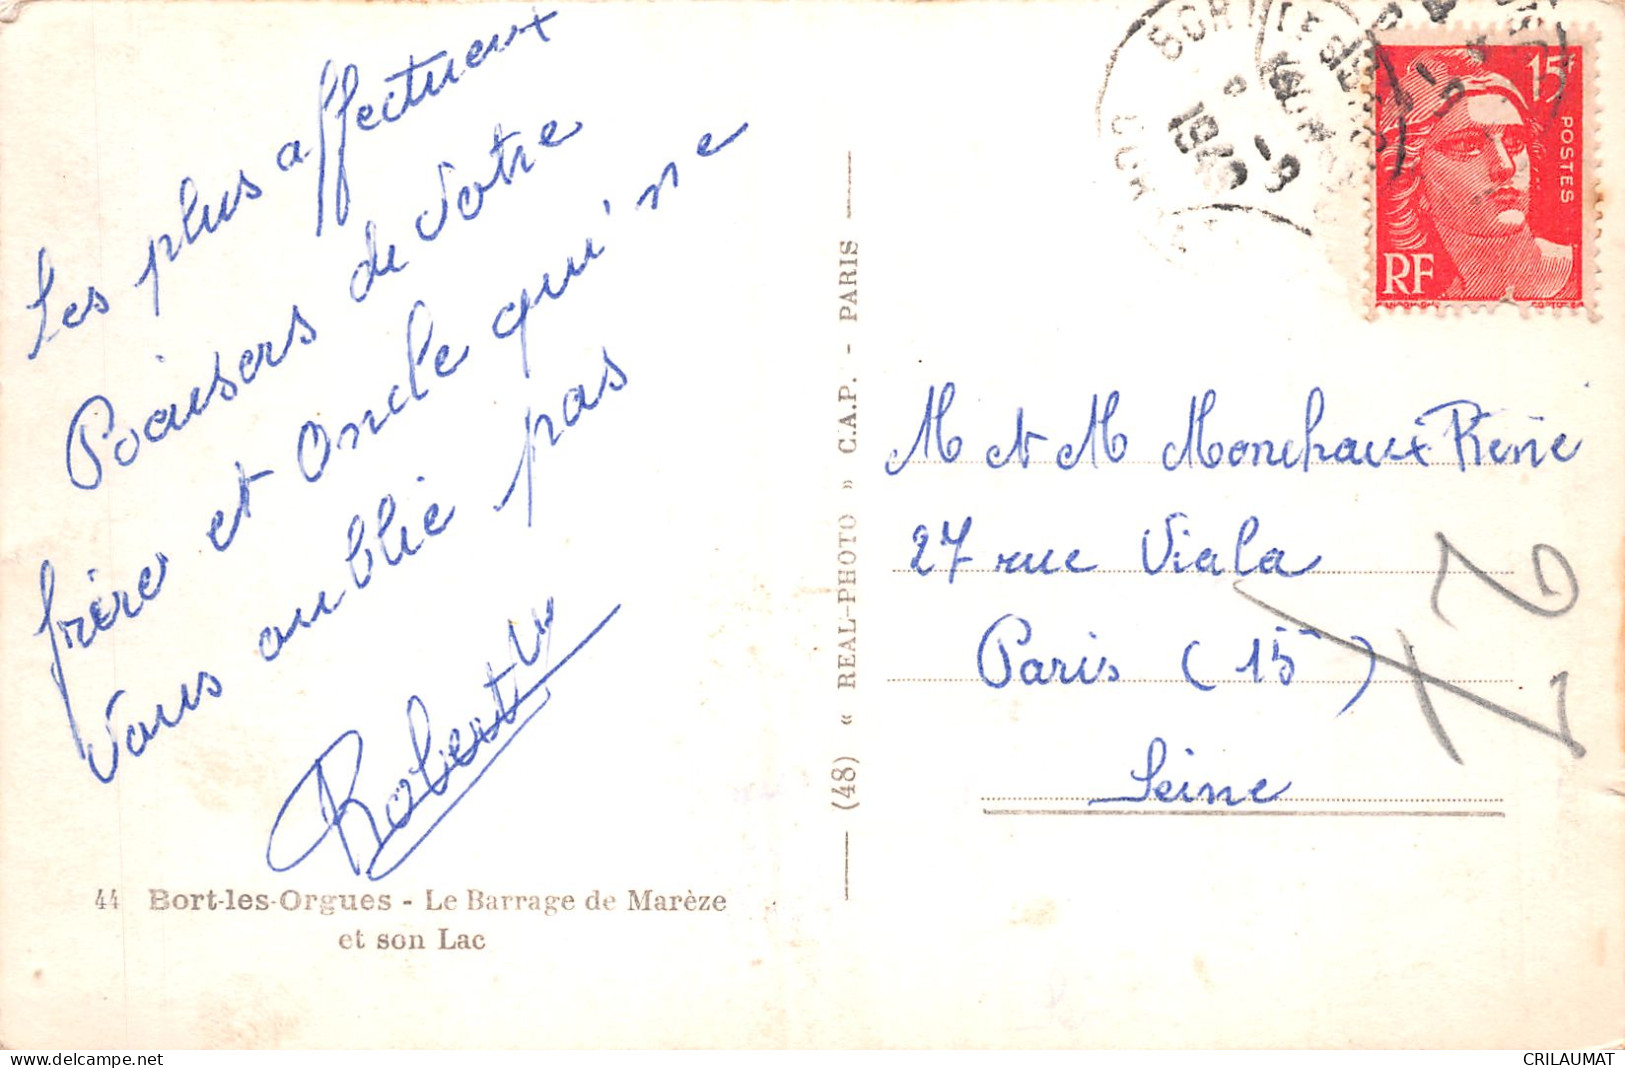 Les plus affectueux
Baisers de Votre
frère et Oncle qui ne
Vous oublie pas
Robert
44 Bort-les-Orgues - Le Barrage de Marèze
et son Lac
(48) « REAL-PHOTO » C.A.P. - PARIS
15f
POSTES
RF
M et M Monchaux René
27 rue Viala
Paris (15)
Seine
www.delcampe.net
CRILAUMAT